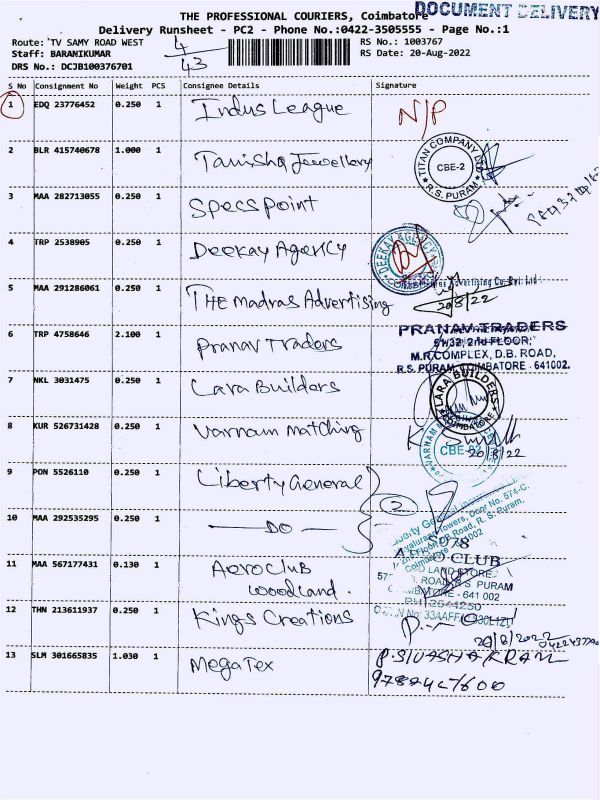 THE PROFESSIONAL COURIERS, Coimbatore
DOCUMENT DELIVERY
Delivery Runsheet - PC2 - Phone No.:0422-3505555 - Page No.:1
Route: TV SAMY ROAD WEST
RS No.: 1003767
Staff: BARANIKUMAR
RS Date: 20-Aug-2022
DRS No.: DCJB100376701
4/43
S No Consignment No Weight PCS Consignee Details Signature
1 EDQ 23776452 0.250 1 Indus League N/P
2 BLR 415740678 1.000 1 Tanishq Jewellery
TITAN COMPANY LTD
CBE-2
R.S. PURAM
3 MAA 282713055 0.250 1 Specs Point
4 TRP 2538905 0.250 1 Deekay Agency
DEEKAY AGENCY
5 MAA 291286061 0.250 1 THE Madras Advertising
Advertising Co. Pvt. Ltd
20/8/22
6 TRP 4758646 2.100 1 Pranav Traders
PRANAV TRADERS
51/32, 2nd FLOOR,
M.R.COMPLEX, D.B. ROAD,
R.S. PURAM, COIMBATORE - 641002.
7 NKL 3031475 0.250 1 Lara Builders
LARA BUILDERS
COIMBATORE
8 KUR 526731428 0.250 1 Varnam Matching
VARNAM
CBE-02
20/8/22
9 PON 5526110 0.250 1 Liberty General
2
10 MAA 292535295 0.250 1 — DO —
Towers, Door No. 574-C,
Road, R. S. Puram,
Coimbatore
11 MAA 567177431 0.130 1 Aeroclub
Wooodland.
CLUB
LAND STORE
ROAD R S PURAM
COIMBATORE - 641 002
PH: 2544250
12 THN 213611937 0.250 1 Kings Creations
20/8/2022
13 SLM 301665835 1.030 1 MegaTex
P.SIVASHAKRAM